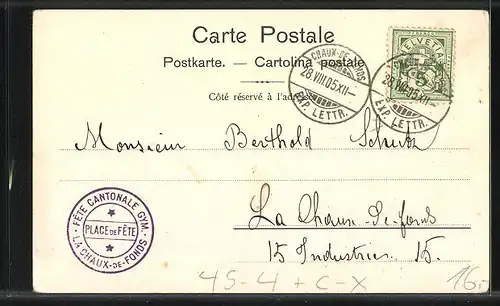 Carte Postale
Postkarte. — Cartolina postale
Côté réservé à l'adresse
HELVETIA
5
CHAUX-DE-FONDS
28.VIII.05.XII-
EXP. LETTR.
28.VIII.05.XII-
EXP. LETTR.
Monsieur Berthold Schutz
La Chaux-de-fonds
15 Industries 15.
FÊTE CANTONALE GYM.
PLACE DE FÊTE
LA CHAUX-DE-FONDS
45-4 + C-X
16.